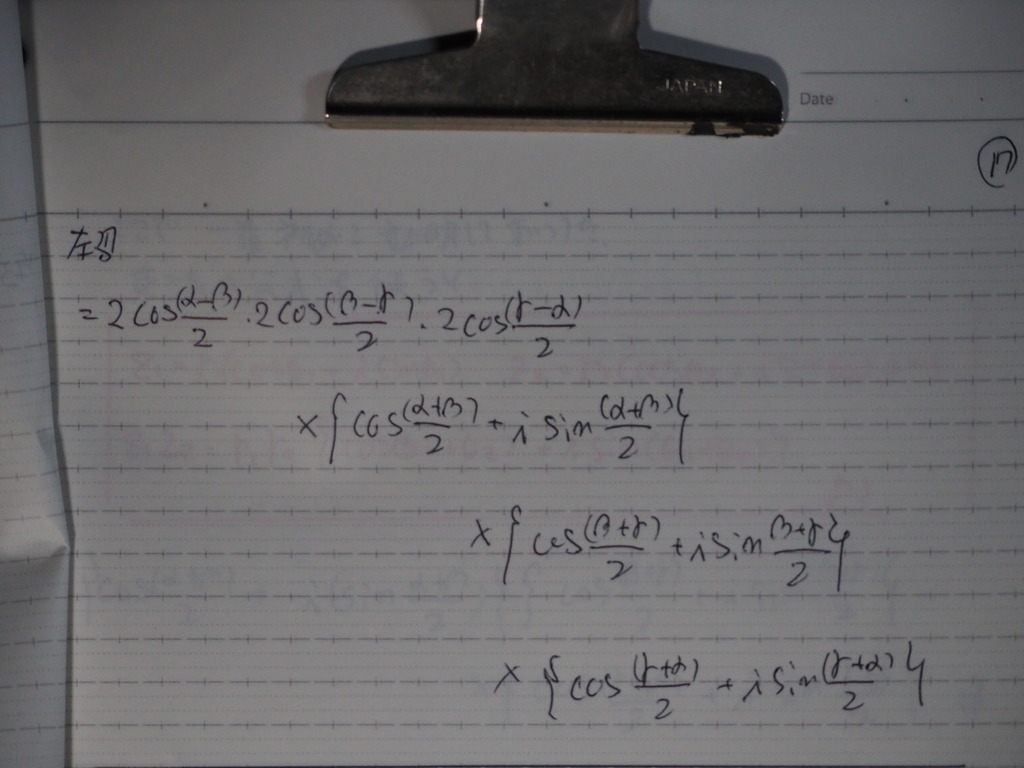 JAPAN
Date
⑰
左辺
= 2cos(α-β)/2 · 2cos(β-γ)/2 · 2cos(γ-α)/2
×{cos(α+β)/2 + i sin(α+β)/2}
×{cos(β+γ)/2 + i sin β+γ/2}
×{cos(γ+α)/2 + i sin(γ+α)/2}